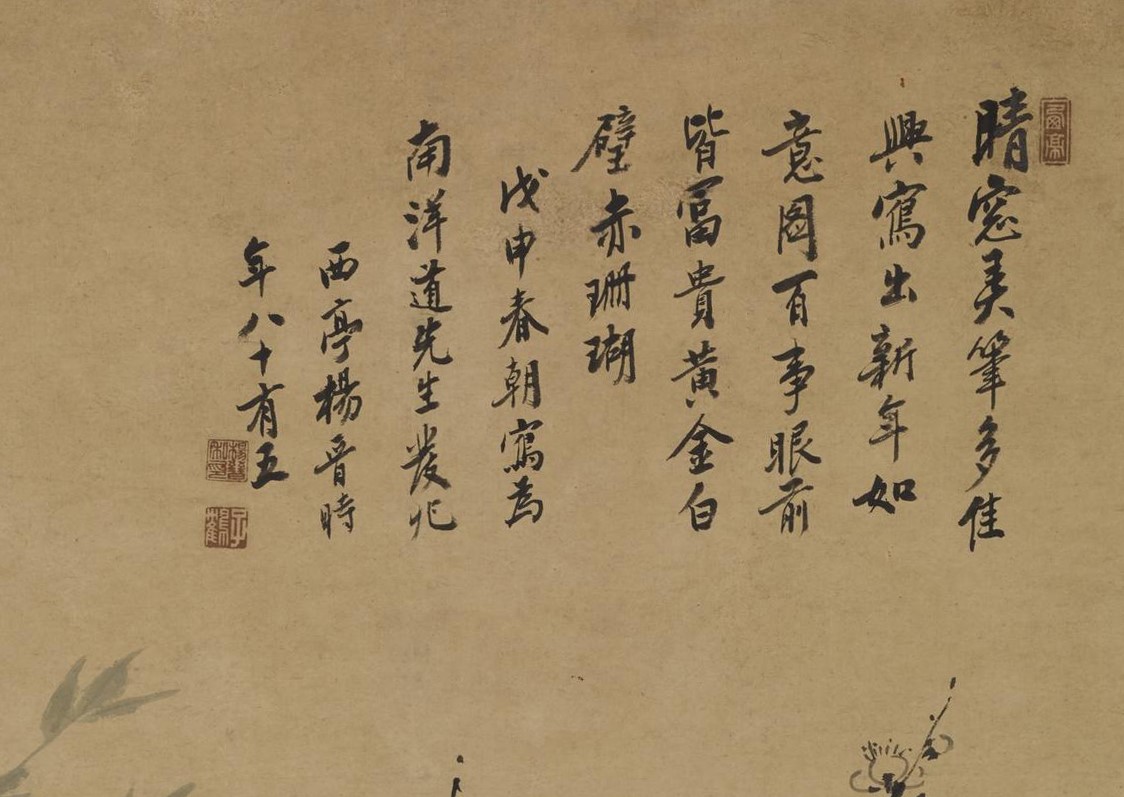 晴窓美筆多佳
興寫出新年如
意圖百事眼前
皆冨貴黃金白
璧赤珊瑚
戊申春朝寫為
南洋道先生發兆
西亭楊晉時
年八十有五
楊晉
子鶴